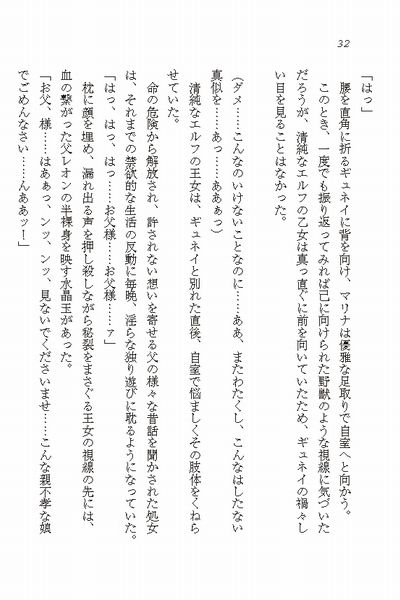 32
「はっ」
　腰を直角に折るギュネイに背を向け、マリナは優雅な足取りで自室へと向かう。
　このとき、一度でも振り返ってみれば己に向けられた野獣のような視線に気づいた
だろうが、清純なエルフの乙女は真っ直ぐに前を向いていたため、ギュネイの禍々し
い目を見ることはなかった。

（ダメ……こんなのいけないことなのに……ああ、またわたくし、こんなはしたない
真似を……あっ……あぁぁっ）
　清純なエルフの王女は、ギュネイと別れた直後、自室で悩ましくその肢体をくねら
せていた。
　命の危険から解放され、許されない想いを寄せる父の様々な昔話を聞かされた処女
は、それまでの禁欲的な生活の反動に毎晩、淫らな独り遊びに耽るようになっていた。
「はっ、はっ、はっ……お父様……お父様……ァ」
　枕に顔を埋め、漏れ出る声を押し殺しながら秘裂をまさぐる王女の視線の先には、
血の繋がった父レオンの半裸身を映す水晶玉があった。
「お父、様……はあぁっ、ンッ、ンッ、見ないでくださいませ……こんな親不孝な娘
でごめんなさい……んああッー」